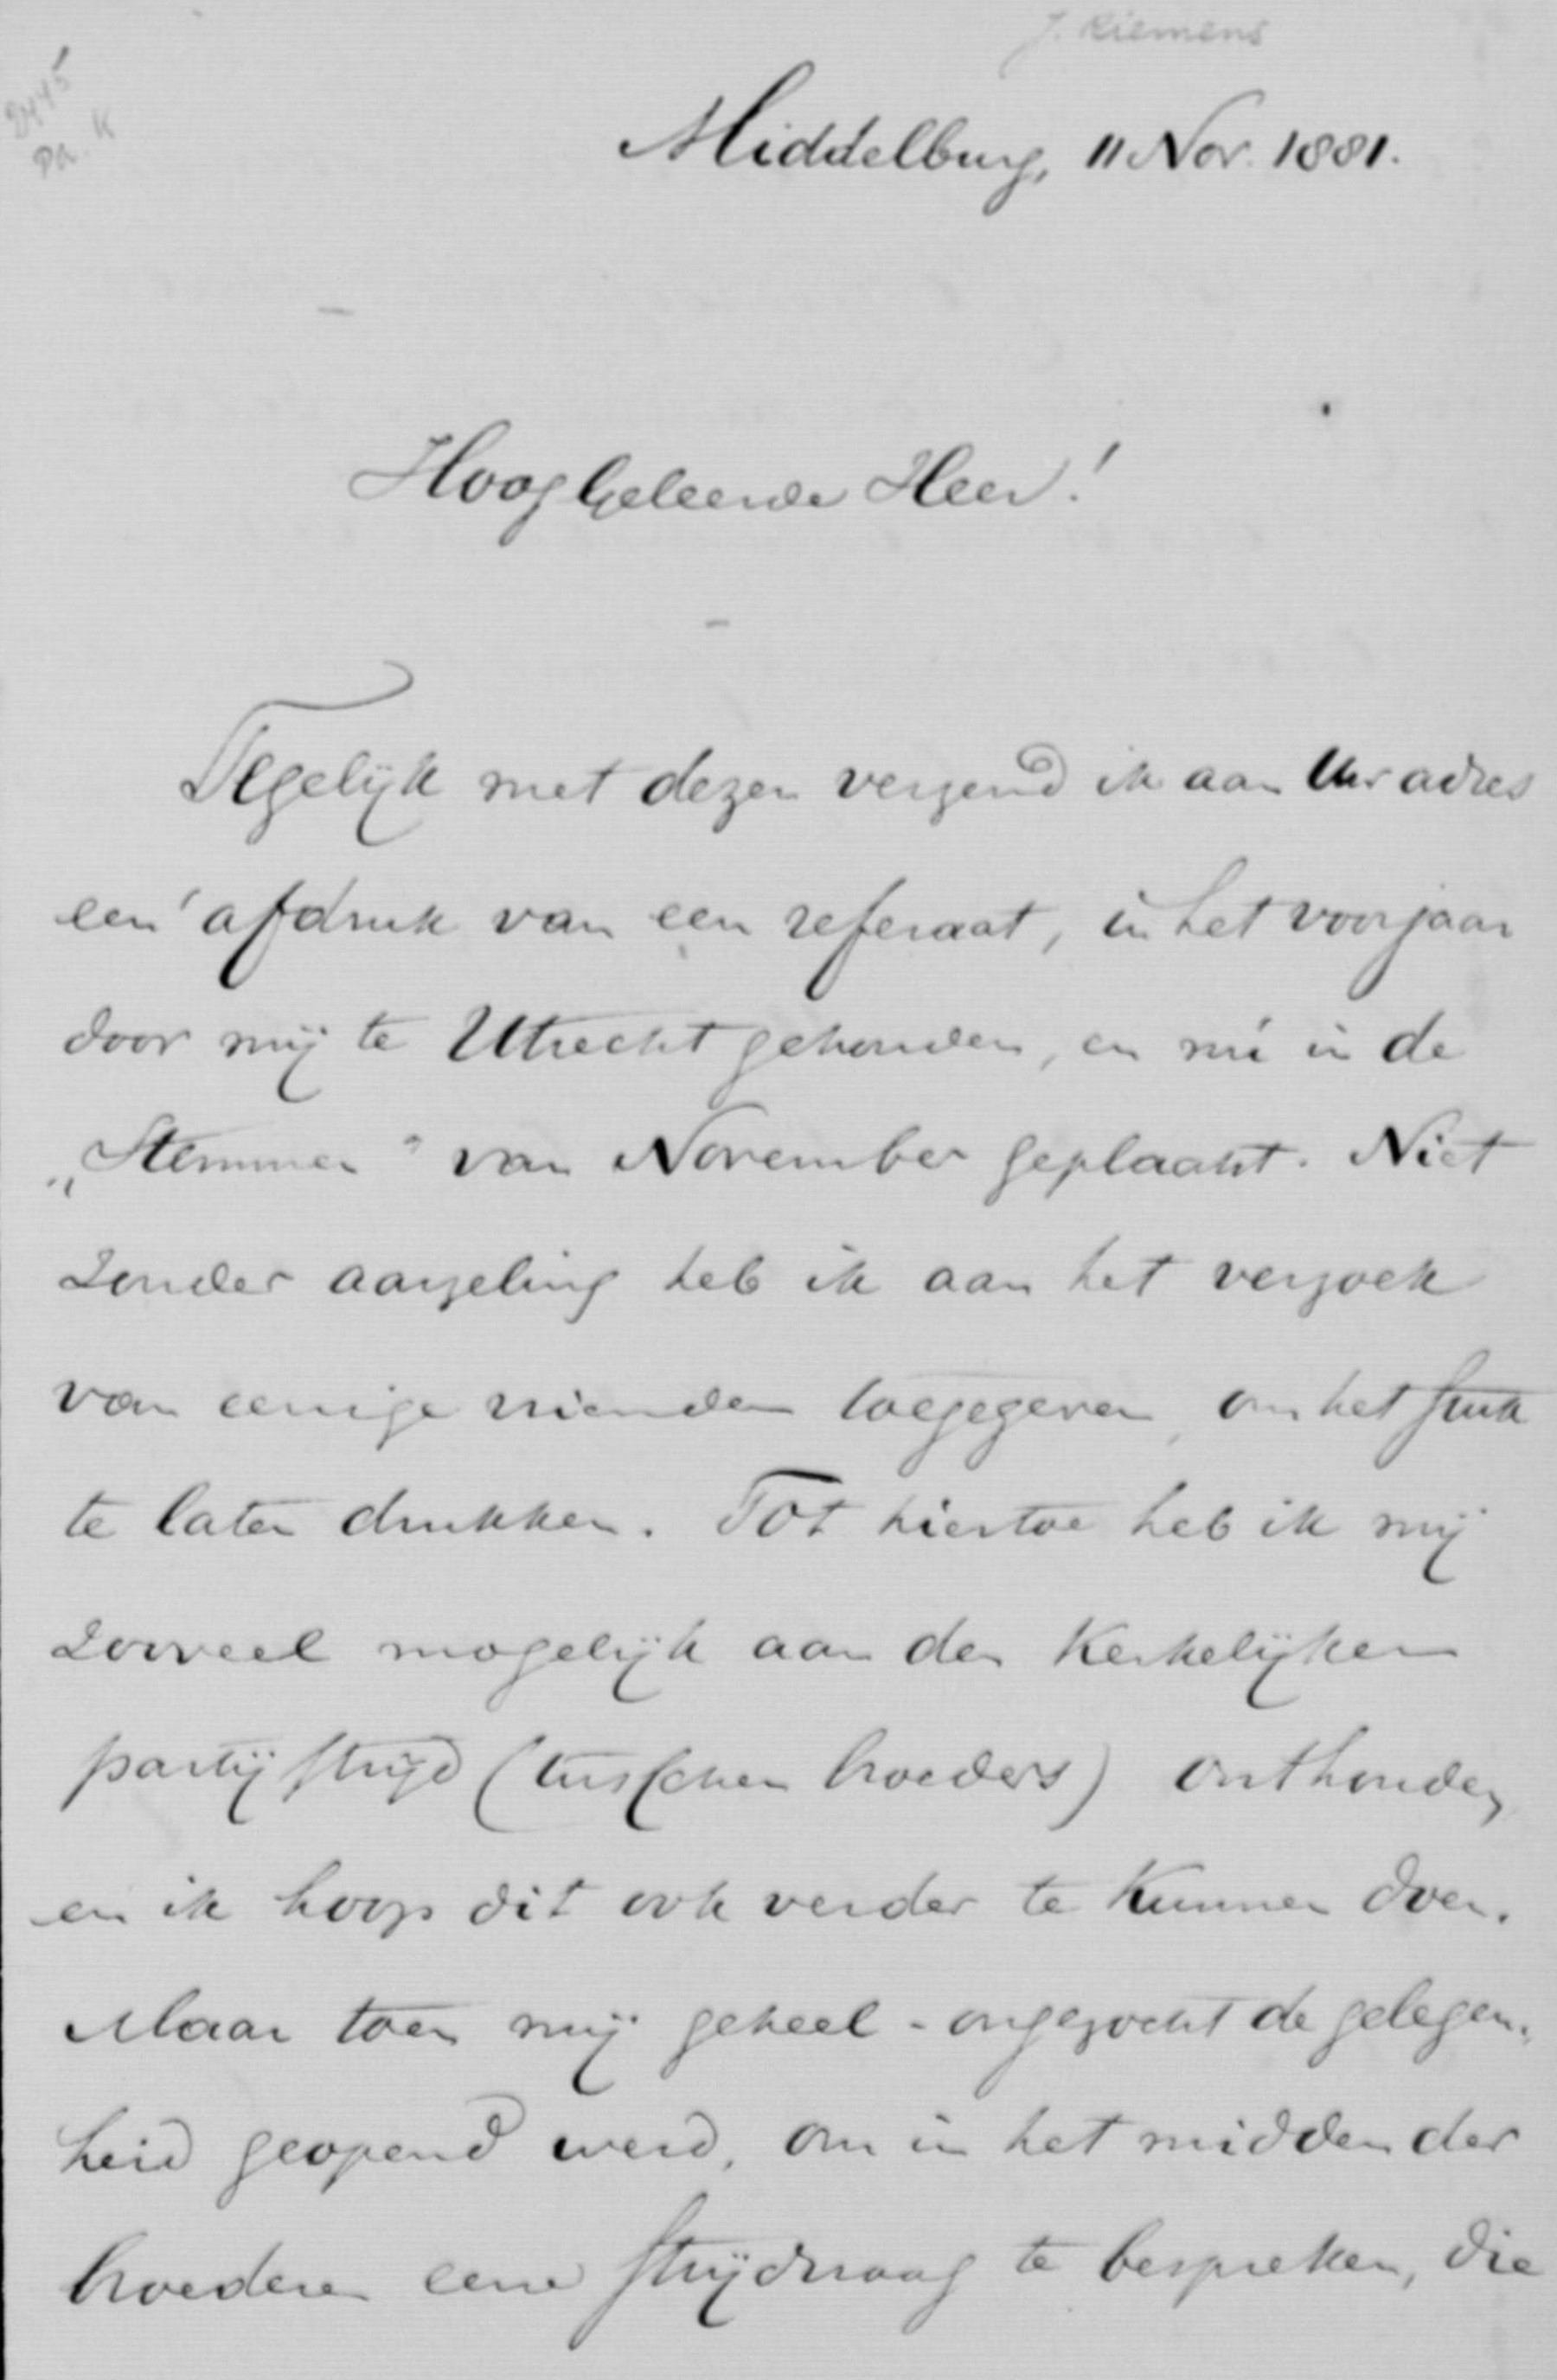 J. Riemens
2445
Pa. K
Middelburg, 11 Nov. 1881.
Hoog Geleerde Heer!
Tegelijk met dezen verzend ik aan Uw adres
een afdruk van een referaat, in het voorjaar
door mij te Utrecht gehouden, en nú in de
„Stemmen" van November geplaatst. Niet
zonder aarzeling heb ik aan het verzoek
van eenige vrienden toegegeven, om het stuk
te laten drukken. Tot hiertoe heb ik mij
zooveel mogelijk aan den Kerkelijken
partijstrijd (tusschen broeders) onthouden,
en ik hoop dit ook verder te kunnen doen.
Maar toen mij geheel-ongezocht de gelegen-
heid geopend werd, om in het midden der
broederen eene strijdvraag te bespreken, die